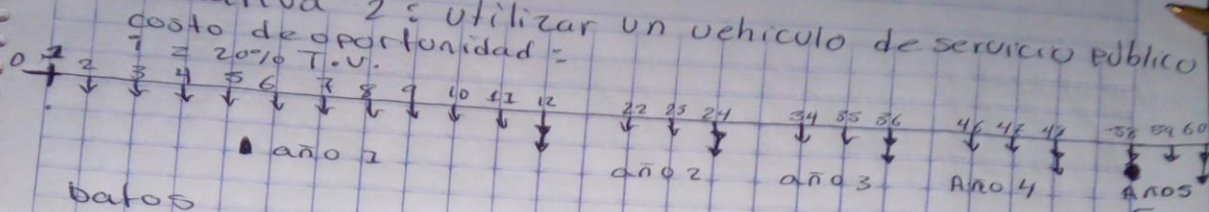 2: Utilizar un vehiculo de servicio publico
costo de oportunidad =
i = 20% T.V.
0 1 2 3 4 5 6 7 8 9 10 11 12 22 23 24 34 35 36 46 47 48 58 59 60
año 1 año 2 año 3 Año 4 Años
Datos